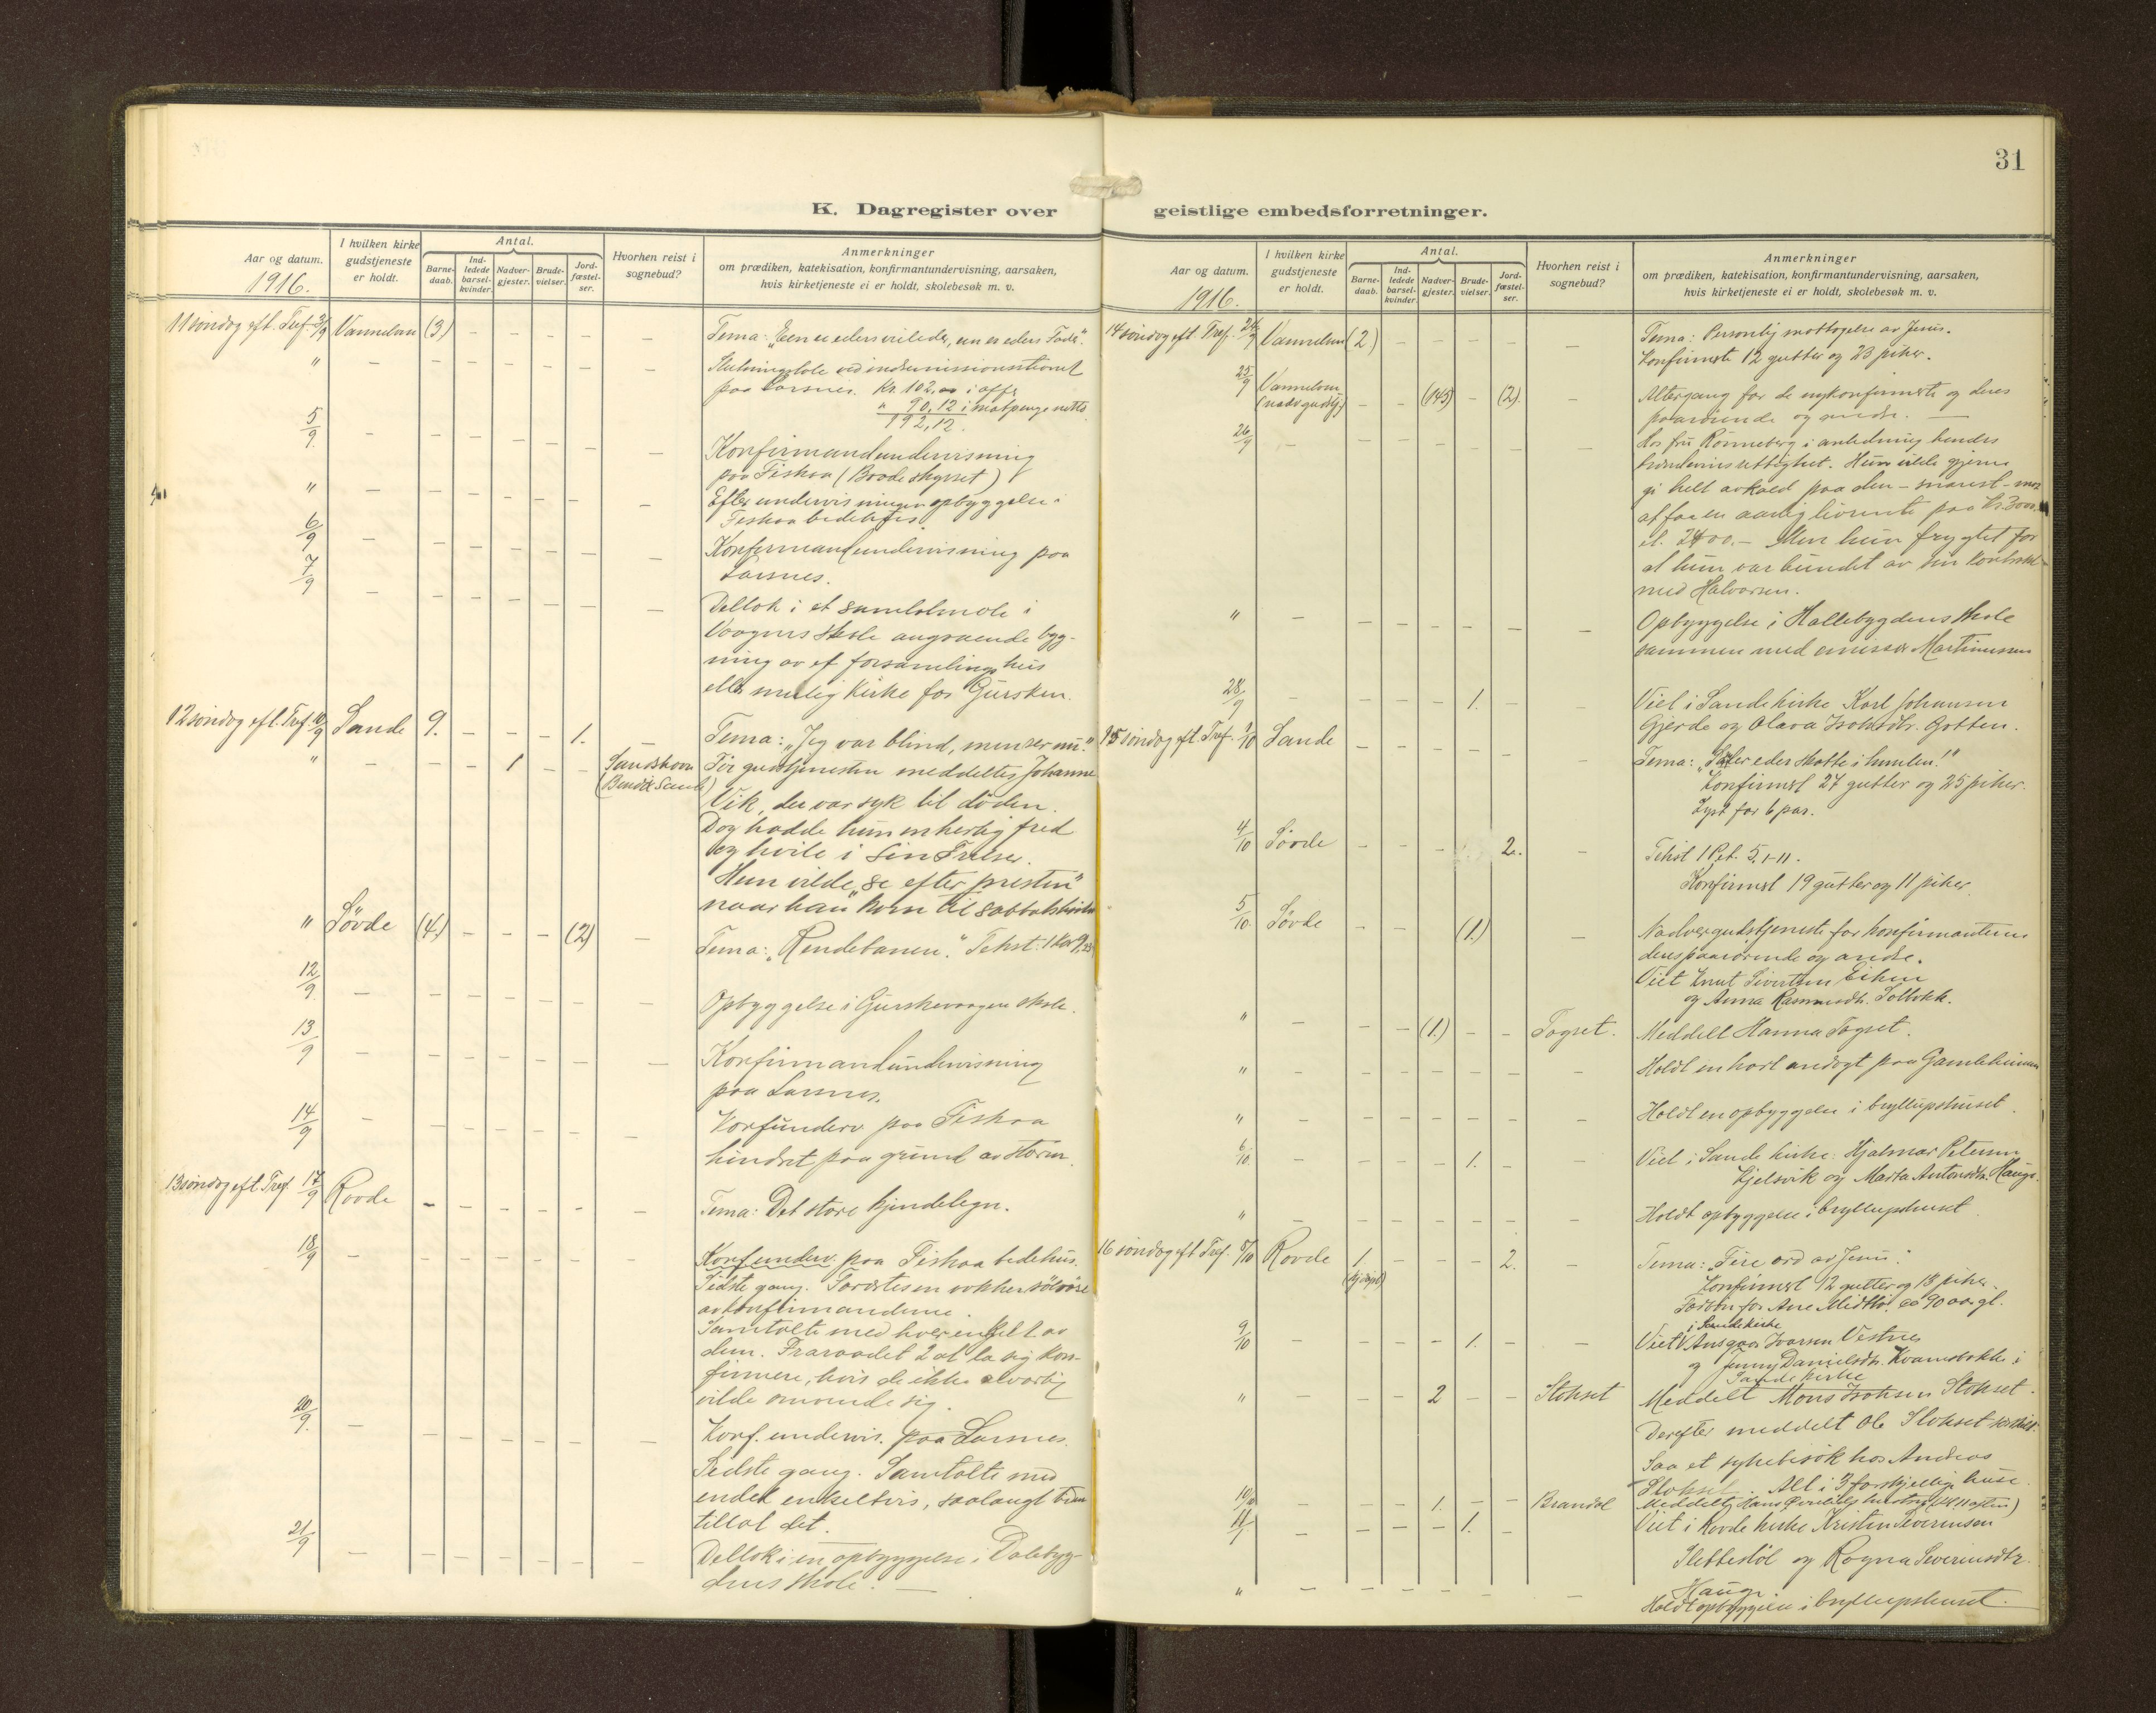 31
K. Dagregister over geistlige embedsforretninger.
Aar og datum.
1916.
I hvilken kirke gudstjeneste er holdt.
Antal.
Barne-daab.
Ind-ledede barsel-kvinder.
Nadver-gjester.
Brude-vielser.
Jord-fæstel-ser.
Hvorhen reist i sognebud?
Anmerkninger
om prædiken, katekisation, konfirmantundervisning, aarsaken,
hvis kirketjeneste ei er holdt, skolebesøk m. v.
11 søndag eft. Tref. 3/9 Vannelven (3) – – – – – Tema: "Een er eders veileder, een er eders Fader".
" – – – – – – – Slutningstale ved indremissionsstevnet
paa Larsnes. Kr. 102,00 i offer
" 90,12 i matpenge netto
192,12.
5/9 – – – – – – – Konfirmandundervisning
paa Fiskaa (Baade skysset)
" – – – – – – – Efter undervisningen opbyggelse i
Fiskaa bedehus.
6/9 – – – – – – – Konfirmandundervisning paa
Larsnes.
7/9 – – – – – – – Deltok i et samtalemøte i
Vaagnes skole angaaende byg-
ning av et forsamlingshus
eller mulig kirke for Gursken.
12 søndag eft. Tref. 10/9 Sande 9. – – – 1. – Tema: "Jeg var blind, men ser nu."
" – – – 1 – – Sandshavn
(Bendik Sande)
Før gudstjenesten meddeltes Johanne
Vik, der var syk til døden.
Dog hadde hun en herlig fred
og hvile i sin Frelser.
Hun vilde "se efter presten"
naar han kom til sabbatshvilen
" Søvde (4) – – – (2) – Tema: "Rendebanen." Tekst: 1 Kor 9,
12/9 – – – – – – – Opbyggelse i Gurskevaagen skole.
13/9 – – – – – – – Konfirmandundervisning
paa Larsnes.
14/9 – – – – – – – Konfunderv paa Fiskaa
hindret paa grund av storm.
13 søndag eft Tref. 17/9 Rovde – – – – – – Tema: Det store kjendetegn.
18/9 – – – – – – – Konfunderv. paa Fiskaa bedehus.
Sidste gang. vakker
av konfirmanderne.
Samtalte med hver enkelt av
dem. Fraraadet 2 at la sig kon-
firmere, hvis de ikke alvorlig
vilde omvende sig.
20/9 – – – – – – – Konf. undervis. paa Larsnes.
Sidste gang. Samtalte med
endel enkeltvis, saalangt tiden
tillot det.
21/9 – – – – – – – Deltok i en opbyggelse i Dalebyg-
dens skole. –
Aar og datum.
1916.
I hvilken kirke gudstjeneste er holdt.
Antal.
Barne-daab.
Ind-ledede barsel-kvinder.
Nadver-gjester.
Brude-vielser.
Jord-fæstel-ser.
Hvorhen reist i sognebud?
Anmerkninger
om prædiken, katekisation, konfirmantundervisning, aarsaken,
hvis kirketjeneste ei er holdt, skolebesøk m. v.
14 søndag eft. Tref. 24/9 Vannelven (2) – – – – – Tema: Personlig mottagelse av Jesus.
Konfirmerte 12 gutter og 23 piker.
25/9 Vannelven
(nadv gudstj.) – – (145) – (2). – Altergang for de nykonfirmerte og deres
paarørende og andre. –
26/9 – – – – – – – Hos fru Rønneberg i anledning hendes
rettighet. Hun vilde gjerne
gi helt avkald paa den – snarest – mot
at faa en aarlig livrente paa kr. 3000,
el. 2400.– Men hun frygtet for
at hun var bundet av sin kontrakt
med Halvorsen.
" – – – – – – – Opbyggelse i Hallebygdens skole
sammen med emissær Martinussen
28/9 – – – – 1. – – Viet i Sande kirke Karl Johansen
Gjerde og Olava Isaksdtr. Gotten.
15 søndag eft. Tref. 1/10 Sande – – – – – – Tema: "Saml eder skatte i himlen!"
Konfirmert 27 gutter og 25 piker.
Lyst for 6 par.
4/10 Søvde – – – 2. – Tekst 1 Pet. 5, 1-11.
Konfirmert 19 gutter og 11 piker.
5/10 Søvde – – (1.) – Nadvergudstjeneste for konfirmanterne
deres paarørende og andre.
Viet Knut Sivertsen Eiken
og Anna Rasmusdtr. Solbakk.
" – – – (1.) – – Togset. Meddelt Hanna Togset.
" – – – – – – – Holdt en kort andagt paa Gamleheimen
" – – – – – – – Holdt en opbyggelse i bryllupshuset.
6/10 – – – – 1. – – Viet i Sande kirke: Hjalmar Petersen
Kjelsvik og Marta Antonsdtr. Hauge.
" – – – – – – – Holdt opbyggelse i bryllupshuset.
16 søndag eft Tref. 8/10 Rovde 1
(hj.døpt) – – – 2. – Tema: "Fire ord av Jesus".
Konfirmert 12 gutter og 13 piker.
Forbøn for Ane Midtbø. ca 90 aar gl.
9/10 – – – – 1. – – Viet i Sande kirke Ansgar Ivarsen Vestnes
og Jenny Danielsdtr. Kvamsbakke i
Sande kirke
" – – – 2 – – Stokset Meddelt Mons Isaksen Stokset.
Derefter meddelt Ole Stokset
Saa et sykebesøk hos Andreas
Stokset. Alt i 3 forskjellige huse.
10/10 – – – 1. – – Brandal Meddelt Hans hustru (kl. 11 aften)
11/ – – – – 1. – Viet i Rovde kirke Kristen Severinsen
Slettestøl og Ragna Severinsdtr.
Hauge.
" – – – – – – – Holdt opbyggelse i bryllupshuset.